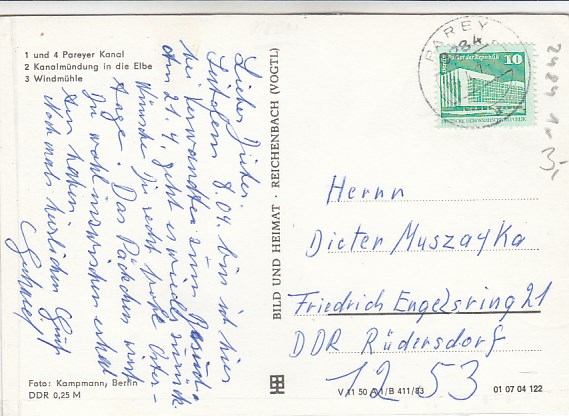 1 und 4 Pareyer Kanal
2 Kanalmündung in die Elbe
3 Windmühle
Lieber Dieter.
Seit dem 8.04. bin ich hier
bei Verwandten zum Besuch.
Am 21.4. geht es wieder zurück.
Wünsche Dir recht frohe Oster-
tage. Das Päckchen wirst
Du wohl inzwischen erhal-
ten haben
Nochmals herzlichen Gruß
Foto: Kampmann, Berlin
DDR 0,25 M
BILD UND HEIMAT · REICHENBACH (VOGTL)
PAREY
3284
Palast der Republik
10
DEUTSCHE DEMOKRATISCHE REPUBLIK
2484
3,-
Herrn
Dieter Muszayka
Friedrich Engelsring 21
DDR Rüdersdorf
1253
V 11 50 A 1/B 411/83
01 07 04 122